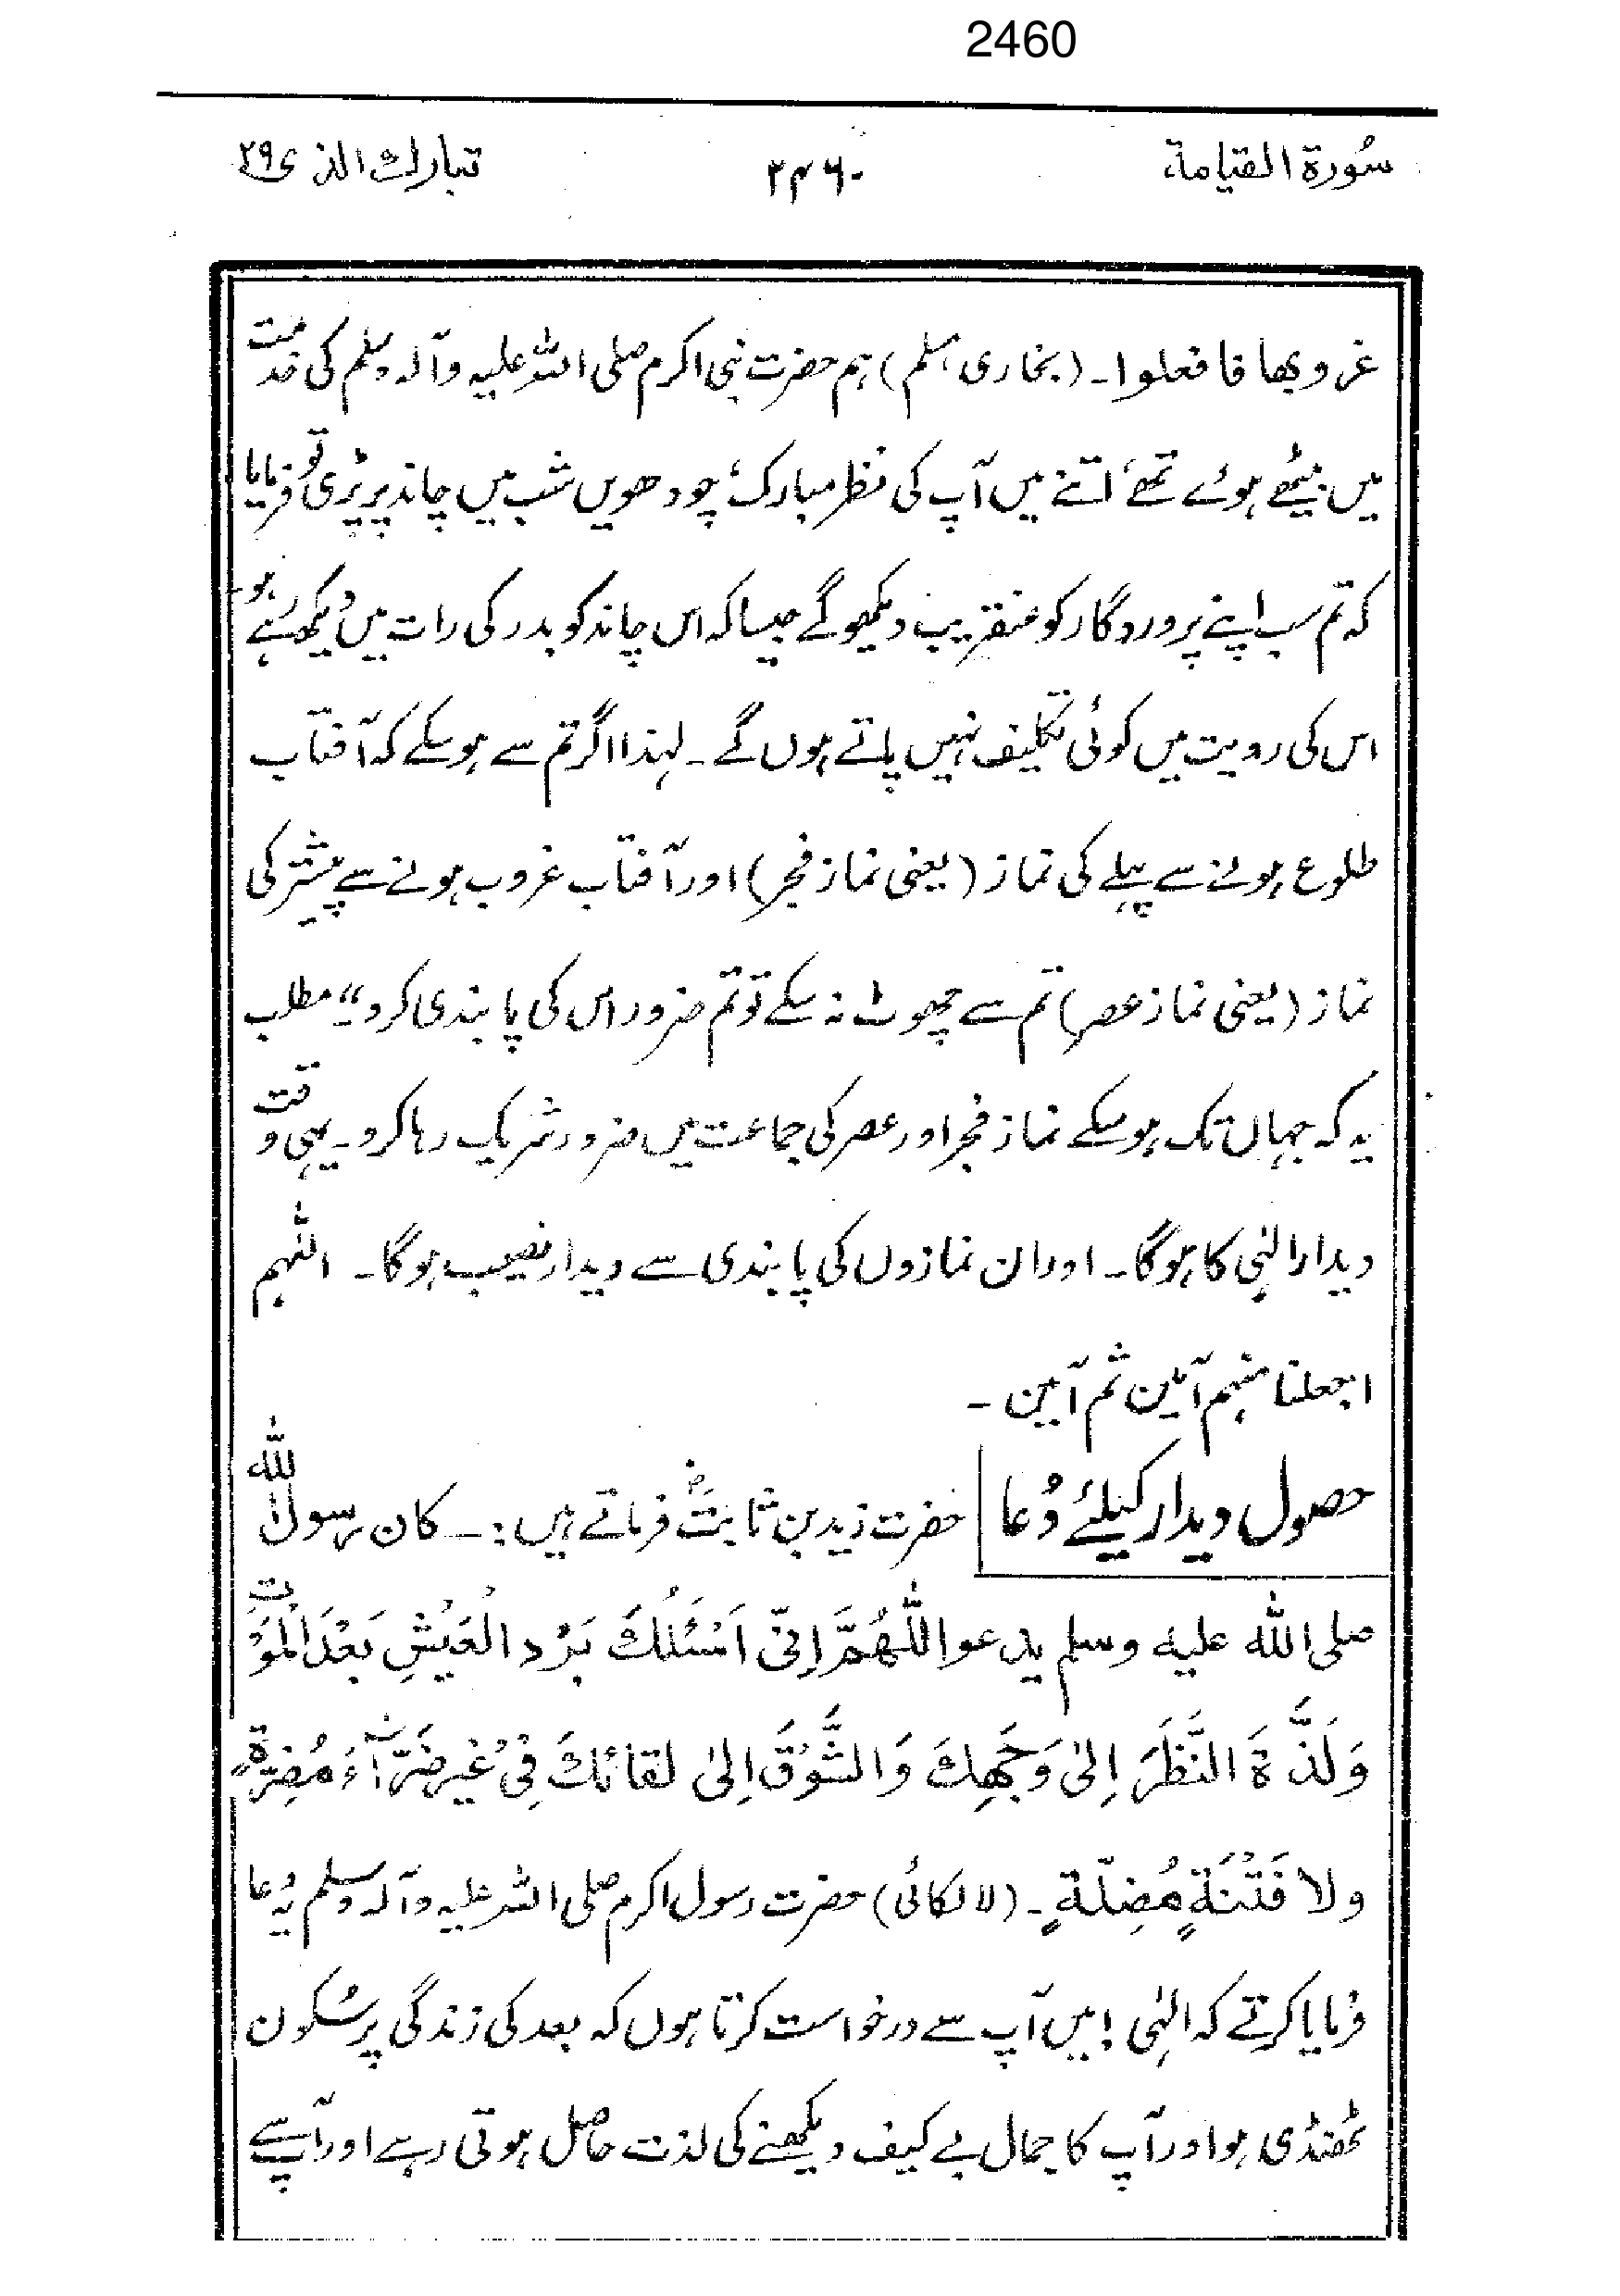 2460
سُورة القيامة ۲۴۶۰ تبارك الذى ۲۹
غروبها فافعلوا۔ (بخاری، مسلم) ہم حضرت نبی اکرم صلی اللہ علیہ وآلہ وسلم کی خدمت
میں بیٹھے ہوئے تھے، اتنے میں آپ کی نظر مبارک، چودھویں شب میں چاند پر پڑی تو فرمایا
کہ تم سب اپنے پروردگار کو عنقریب دیکھو گے جیسا کہ اس چاند کو بدر کی رات میں دیکھ رہے ہو۔
اس کی رویت میں کوئی تکلیف نہیں پاتے ہوں گے۔ لہٰذا اگر تم سے ہو سکے کہ آفتاب
طلوع ہونے سے پہلے کی نماز (یعنی نماز فجر) اور آفتاب غروب ہونے سے پیشتر کی
نماز (یعنی نماز عصر) تم سے چھوٹ نہ سکے تو تم ضرور اس کی پابندی کرو"۔ مطلب
یہ کہ جہاں تک ہو سکے نماز فجر اور عصر کی جماعت میں ضرور شریک رہا کرو۔ یہی وقت
دیدار الٰہی کا ہوگا۔ اور ان نمازوں کی پابندی سے دیدار نصیب ہوگا۔ اللّٰہم
اجعلنا منہم آمین ثم آمین۔
حصول دیدار کیلئے دُعا حضرت زید بن ثابتؓ فرماتے ہیں:۔ کان رسول اللّٰه
صلى اللّٰه عليه وسلم يدعو اللّٰهُمَّ اِنِّى اَسْئَلُكَ بَرْدَ الْعَيْشِ بَعْدَ الْمَوْتِ
وَلَذَّةَ النَّظَرَ اِلىٰ وَجْهِكَ وَالشَّوْقَ اِلىٰ لقائكَ فِىْ غَيْرِ ضَرَّآءَ مُضِرَّةٍ
ولا فَتْنَةٍ مُضِلَّةٍ۔ (لالکائی) حضرت رسول اکرم صلی اللہ علیہ وآلہ وسلم یہ دُعا
فرمایا کرتے کہ الٰہی! میں آپ سے درخواست کرتا ہوں کہ بعد کی زندگی پر سُکون
ٹھنڈی ہو اور آپ کا جمال بے کیف دیکھنے کی لذت حاصل ہوتی رہے اور آپ سے